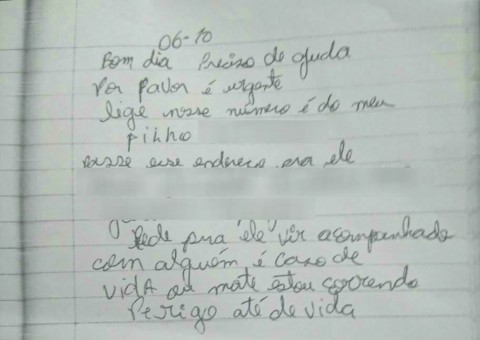 06-10
Bom dia Preciso de ajuda
Por Favor é urgente
lige nesse número é do meu
filho
passe esse endereço pra ele
Pede pra ele vir acompanhado
com alguém é caso de
vidA ou morte estou correndo
Perigo até de vida